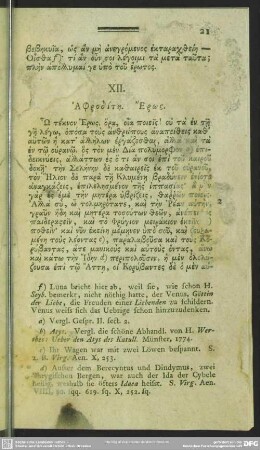 21
βεβηκυῖα, ὡς ἂν μὴ ἀνεγρόμενος ἐκταραχθείη —
Οἶσθα f): τί ἂν οὖν σοι λέγοιμι τὰ μετὰ ταῦτα;
πλὴν ἀπόλλυμαί γε ὑπὸ τοῦ ἔρωτος.
XII.
Ἀφροδίτη. Ἔρως.
Ὦ τέκνον Ἔρως, ὅρα, οἷα ποιεῖς! οὐ τὰ ἐν τῇ
γῇ λέγω, ὁπόσα τοὺς ἀνθρώπους ἀναπείθεις καθ'
αὑτῶν ἢ κατ' ἀλλήλων ἐργάζεσθαι, ἀλλὰ καὶ τὰ
ἐν τῷ οὐρανῷ· ὃς τὸν μὲν Δία πολύμορφον
δεικνύεις, ἀλλάττων ἐς ὅ τι ἄν σοι ἐπὶ τοῦ καιροῦ
δοκῇ· τὴν Σελήνην δὲ καθαιρεῖς ἐκ τοῦ οὐρανοῦ,
τὸν Ἥλιον δὲ παρὰ τῇ Κλυμένῃ βραδύνειν ἐνίοτε
ἀναγκάζεις, ἐπιλελησμένον τῆς ἱππασίας·
γὰρ ἐς ἐμὲ τὴν μητέρα ὑβρίζεις,
Ἀλλὰ σὺ, ὦ τολμηρότατε, καὶ τὴν Ῥέαν αὐτὴν,
γραῦν ἤδη καὶ μητέρα τοσούτων θεῶν, ἀνέπεισας
παιδεραστεῖν, καὶ τὸ Φρύγιον μειράκιον ἐκεῖνο
ποθεῖν· καὶ νῦν ἐκείνη μέμηνεν ὑπὸ σοῦ, καὶ
μένη τοὺς λέοντας c), παραλαβοῦσα καὶ τοὺς
ρύβαντας, ἅτε μανικοὺς καὶ αὐτοὺς ὄντας, ἄνω
καὶ κάτω τὴν Ἴδην d) περιπολοῦσιν, ἡ μὲν ὀλολύ-
ζουσα ἐπὶ τῷ Ἄττῃ, οἱ Κορύβαντες δὲ ὁ μὲν
f) Luna bricht hier ab, weil sie, wie schon H.
Seyb. bemerkt, nicht nöthig hatte, der Venus, Göttin
der Liebe, die Freuden einer Liebenden zu schildern.
Venus weiss sich das Uebrige schon hinzuzudenken.
a) Vergl. Gespr. II. sect. 2.
b) Atys. Vergl. die schöne Abhandl. von H. Wer-
Ueber den Atys des Katull. Münster, 1774.
c) Ihr Wagen war mit zwei Löwen bespannt. S.
z. B. Virg. Aen. X, 253.
d) Ausser dem Berecyntus und Dindymus, zwei
Phrygischen Bergen, war auch der Ida der Cybele
heilig, weshalb sie öfters Idaea heisst. S. Virg. Aen.
qq. 619. sq. X, 252.